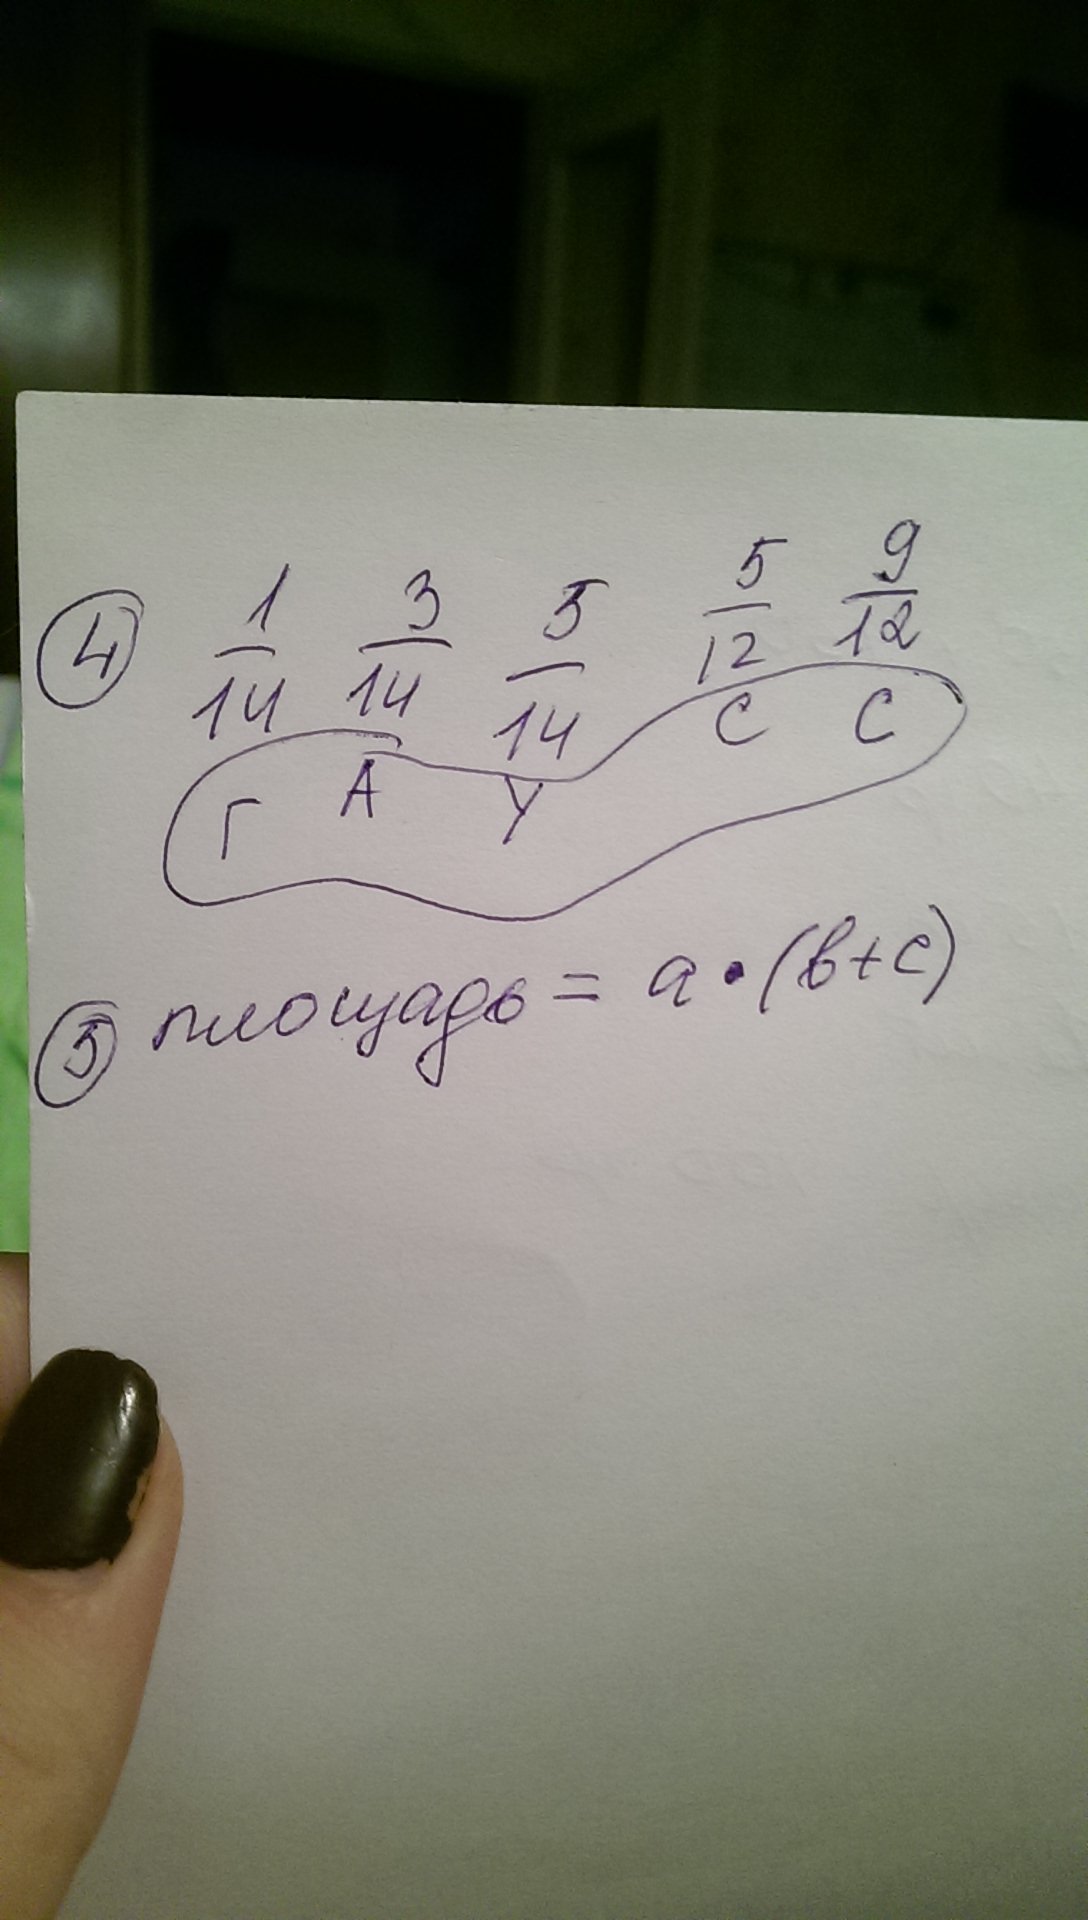 ④ 1/14 3/14 5/14 5/12 9/12
Г А У С С
⑤ площадь = a·(b+c)